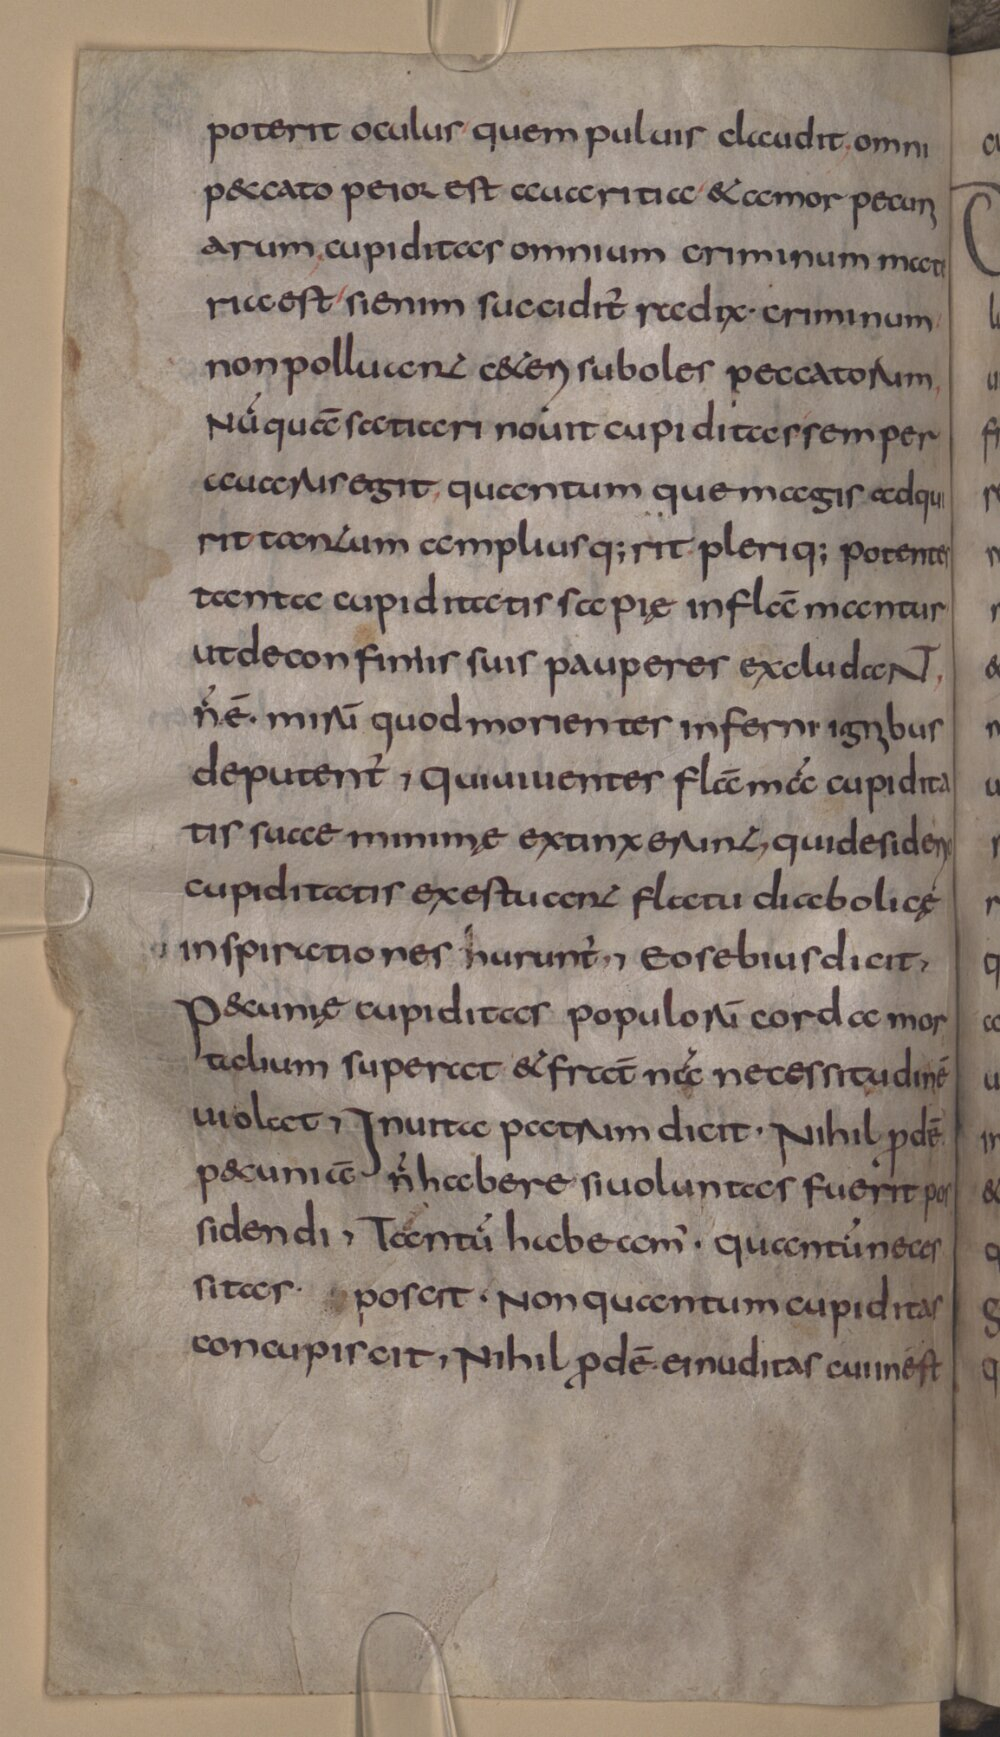 poterit oculus quem puluis claudit, omni
p&cato peior est auaritia & amor pecuni
arum, cupiditas omnium criminum mate
ria est sienim succidit̄ radix· criminum
non polluant c&erę suboles peccatorum,
Nū́quā satiari nouit cupiditas semper
auarus egit, quantum que magis adqui
rit tantum amplius q; rit pleriq; potentes
tanta cupiditatis sae pię inflāmantur
utdeconfiniis suis pauperes excludaNT,
n̄ ē· mirū quod morientes inferni ignibus
deputent̄, Quiuiuentes flāmā cupidita
tis suae minimę extinxerunt, quidesiderio
cupiditatis exestuant flatu diabolicę
inspirationes huruntᷣ, Eosebius dicit,
P&cunię cupiditas populorū corda mor
talium superat & fratnā necessitudinē
uiolat, Inuita patrum dicit· Nihil ꝓdē
p&uniā n̄habere siuoluntas fuerit pos
sidendi, Tantū habeam̄· quantū neces
sitas· poscit· Non quantum cupiditas
concupiscit, Nihil ꝓdē· einuditas cuiinest